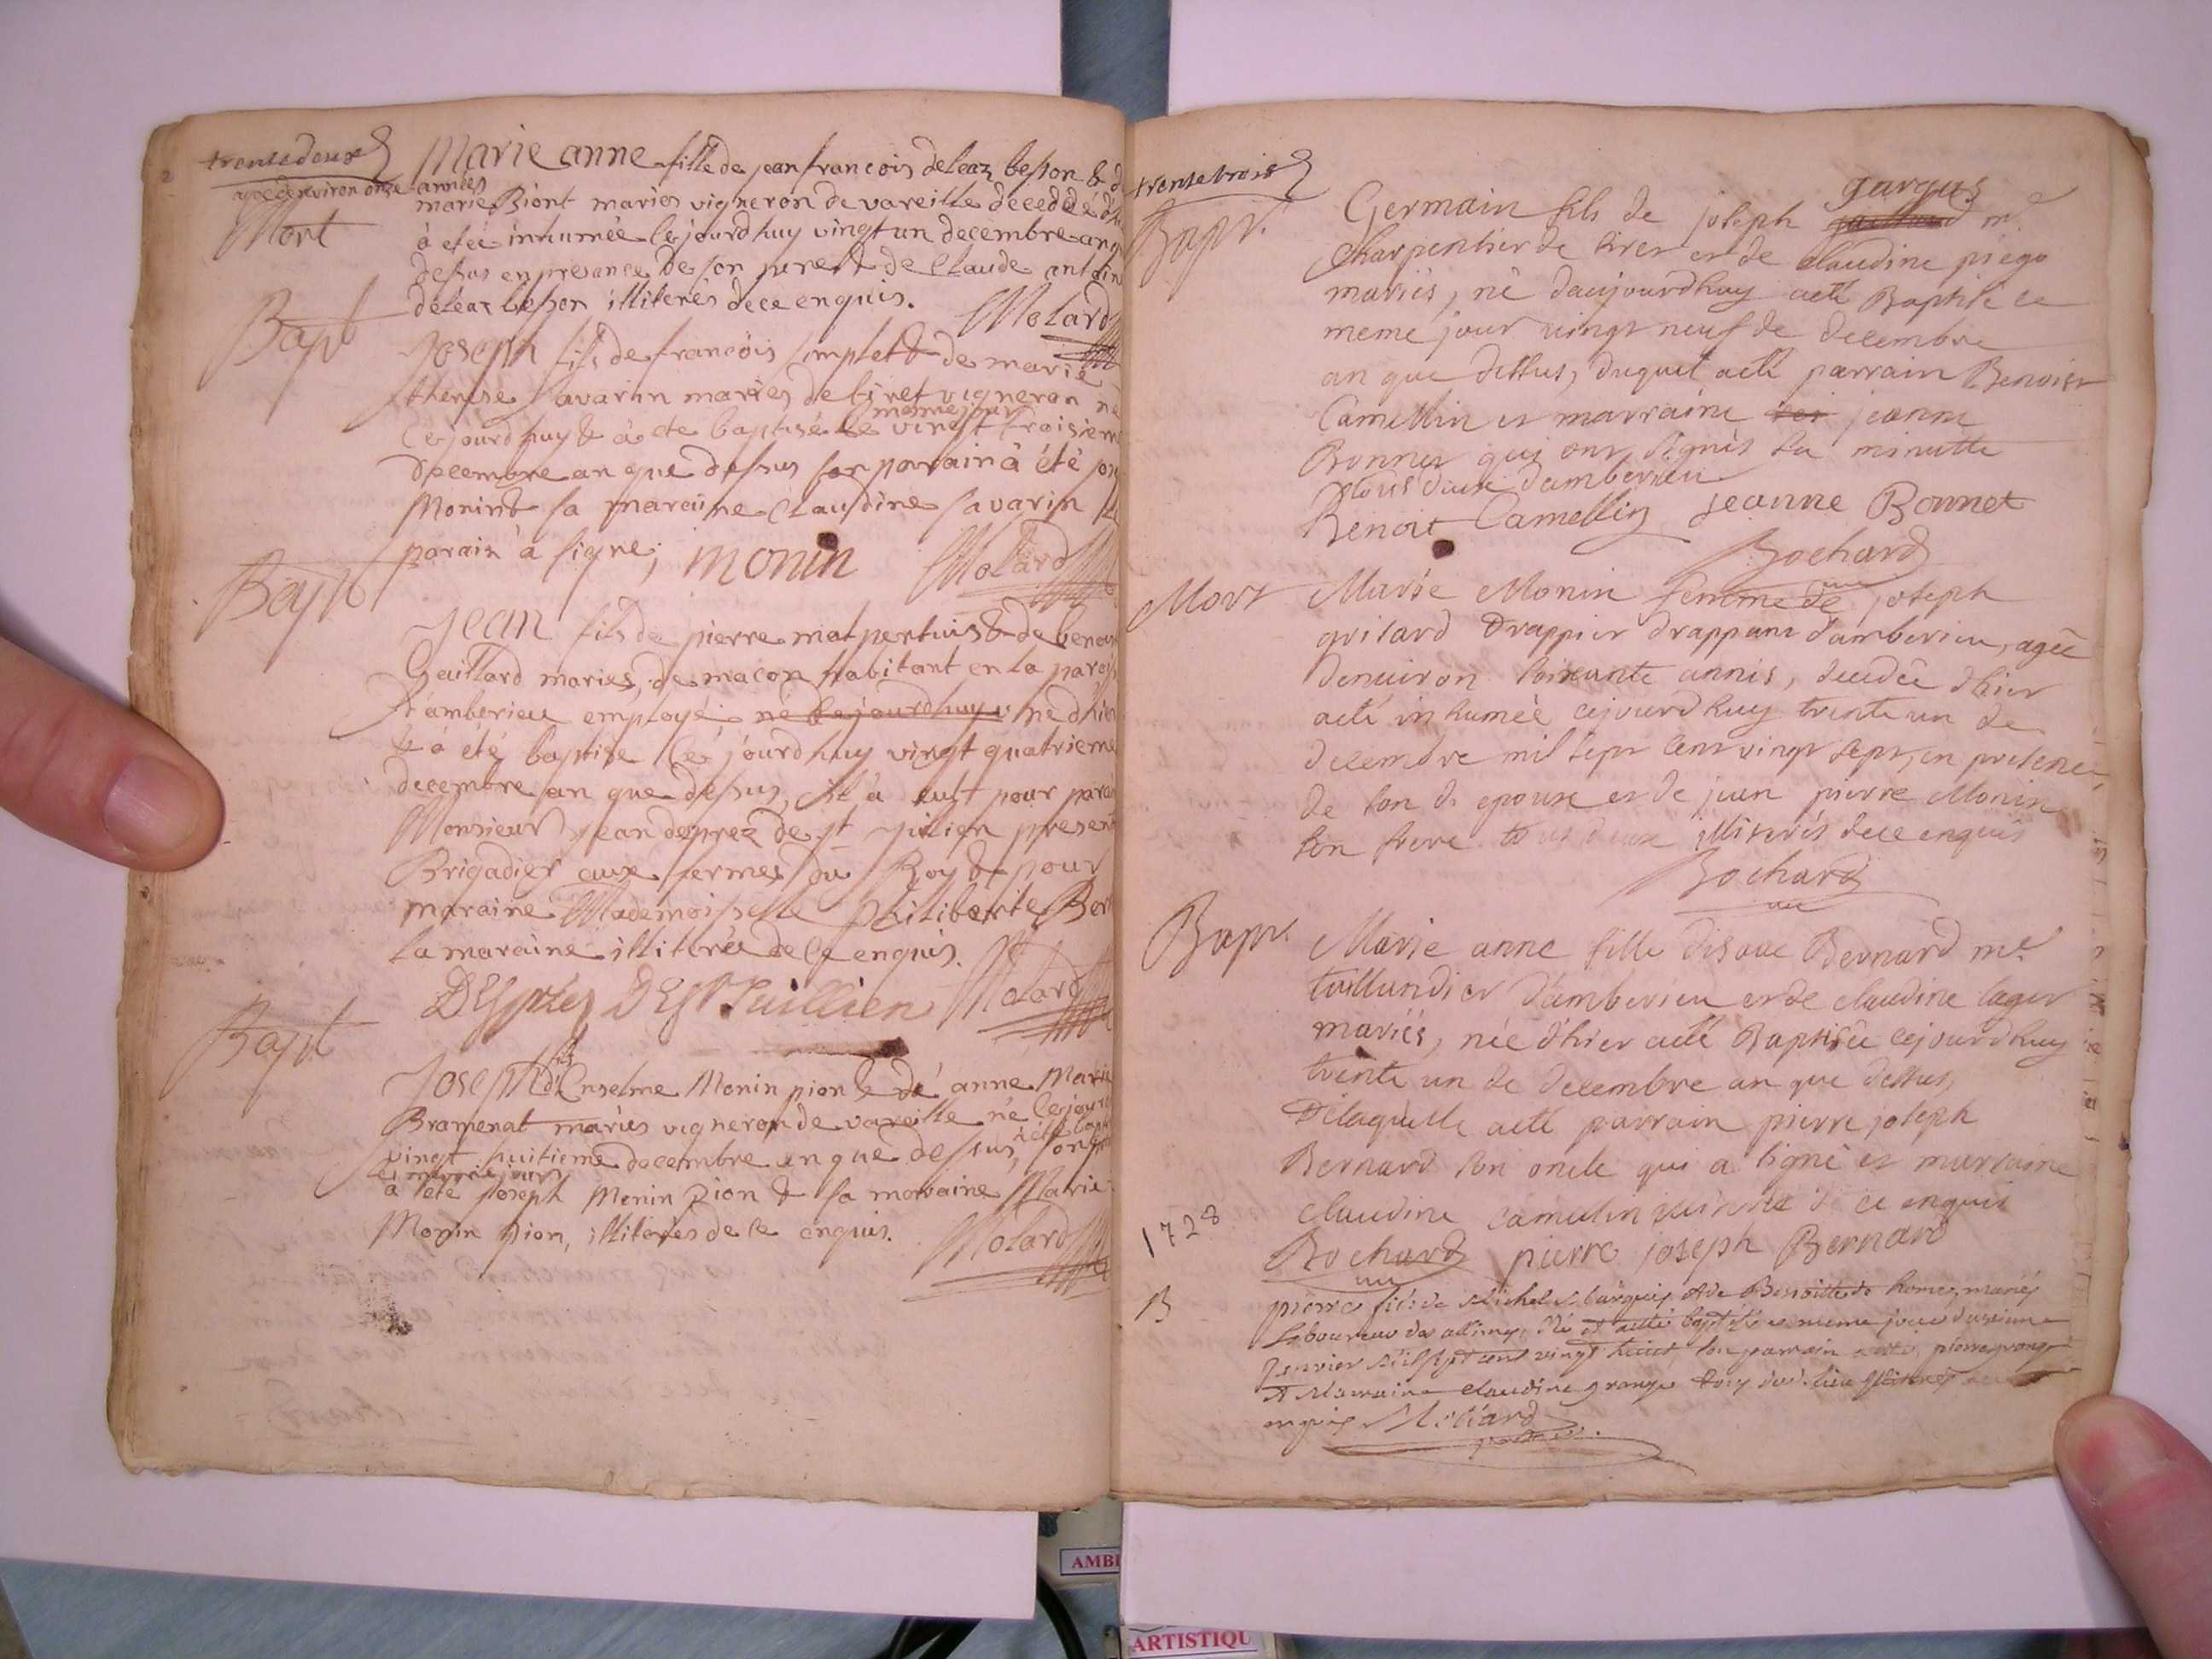 trentedeux
Marie anne fille de jean francois deleaz besson & d
agée denviron onze années
Mort
marie Biont mariés vigneron de vareille decedée d'hi
à etée inhumée cejourdhuy vingt un decembre an q
dessus en presance de son pere & de Claude antoin
deleaz besson illiterés de ce enquis. Molard
Bapt
Joseph fils de francois & de marie
therese Savarin mariés de tiret vigneron né
cejourdhuy & à été baptisé le meme jour vingt troisiem
decembre an que dessus son parain à été jos
Monin & sa maraine Claudine Savarin le
parain à signe; monin Molard
Bapt
Jean fils de pierre malpertuis & de benoi
Gaillard mariés, de macon habitant en la paroi
d'amberieu employé né cejourdhuy né d'hier
& à été baptise cejourdhuy vingt quatrieme
decembre an que dessus, il à eust pour parai
Monsieur jean desprez de st julien present
Brigadier aux fermes du Roy & pour
maraine Mademoiselle philiberte Ber
la maraine illiterée de ce enquis.
Desprez Dest Juillien Molard
Bapt
Joseph fils d'Enselme Monin pion & de anne Marie
Bramenat mariés vigneron de vareille né cejour
vingt huitieme decembre an que dessus, & été bapt son par
le meme jour
a été joseph Monin pion & sa maraine Marie
Monin pion, illiterés de ce enquis. Molard
trentetrois
Bapt.
gargues
Germain fils de joseph me
Charpentier de tiret et de claudine piego
mariés, né daujourdhuy aeté Baptisé ce
meme jour vingt neuf de decembre
an que dessus, duquel aeté parrain Benoist
Camellin et marraine jeanne
Bonnet qui ont signés la minutte
tous deux damberieu
Benoit Camellin jeanne Bonnet
Bochard
Mort
Marie Monin femme de joseph
grisard Drappier drappant d'amberieu, agée
denviron soixante annés, decedée d'hier
aeté inhumée cejourdhuy trente un de
decembre mil sept cent vingt sept, en presence
de son d. epoux et de jean pierre Monin
son frere tous deux illiterés de ce enquis
Bochard
Bapt.
Marie anne fille disaac Bernard me
taillandier d'amberieu et de claudine lager
mariés, née d'hier aeté Baptisée cejourdhuy
trente un de decembre an que dessus,
De laquelle aeté parrain pierre joseph
Bernard son oncle qui a signé et marraine
claudine camelin illiterée de ce enquis
Bochard pierre joseph Bernard
1728
B
pierre fils de Michel et de Benoitte de home, mariés
laboureur des allimes, né et aeté baptisé ce meme jour
Janvier mil sept cent vingt huict son parrain aeté pierre grange
et Marraine claudine grange tous dud. lieu
enquis Molard